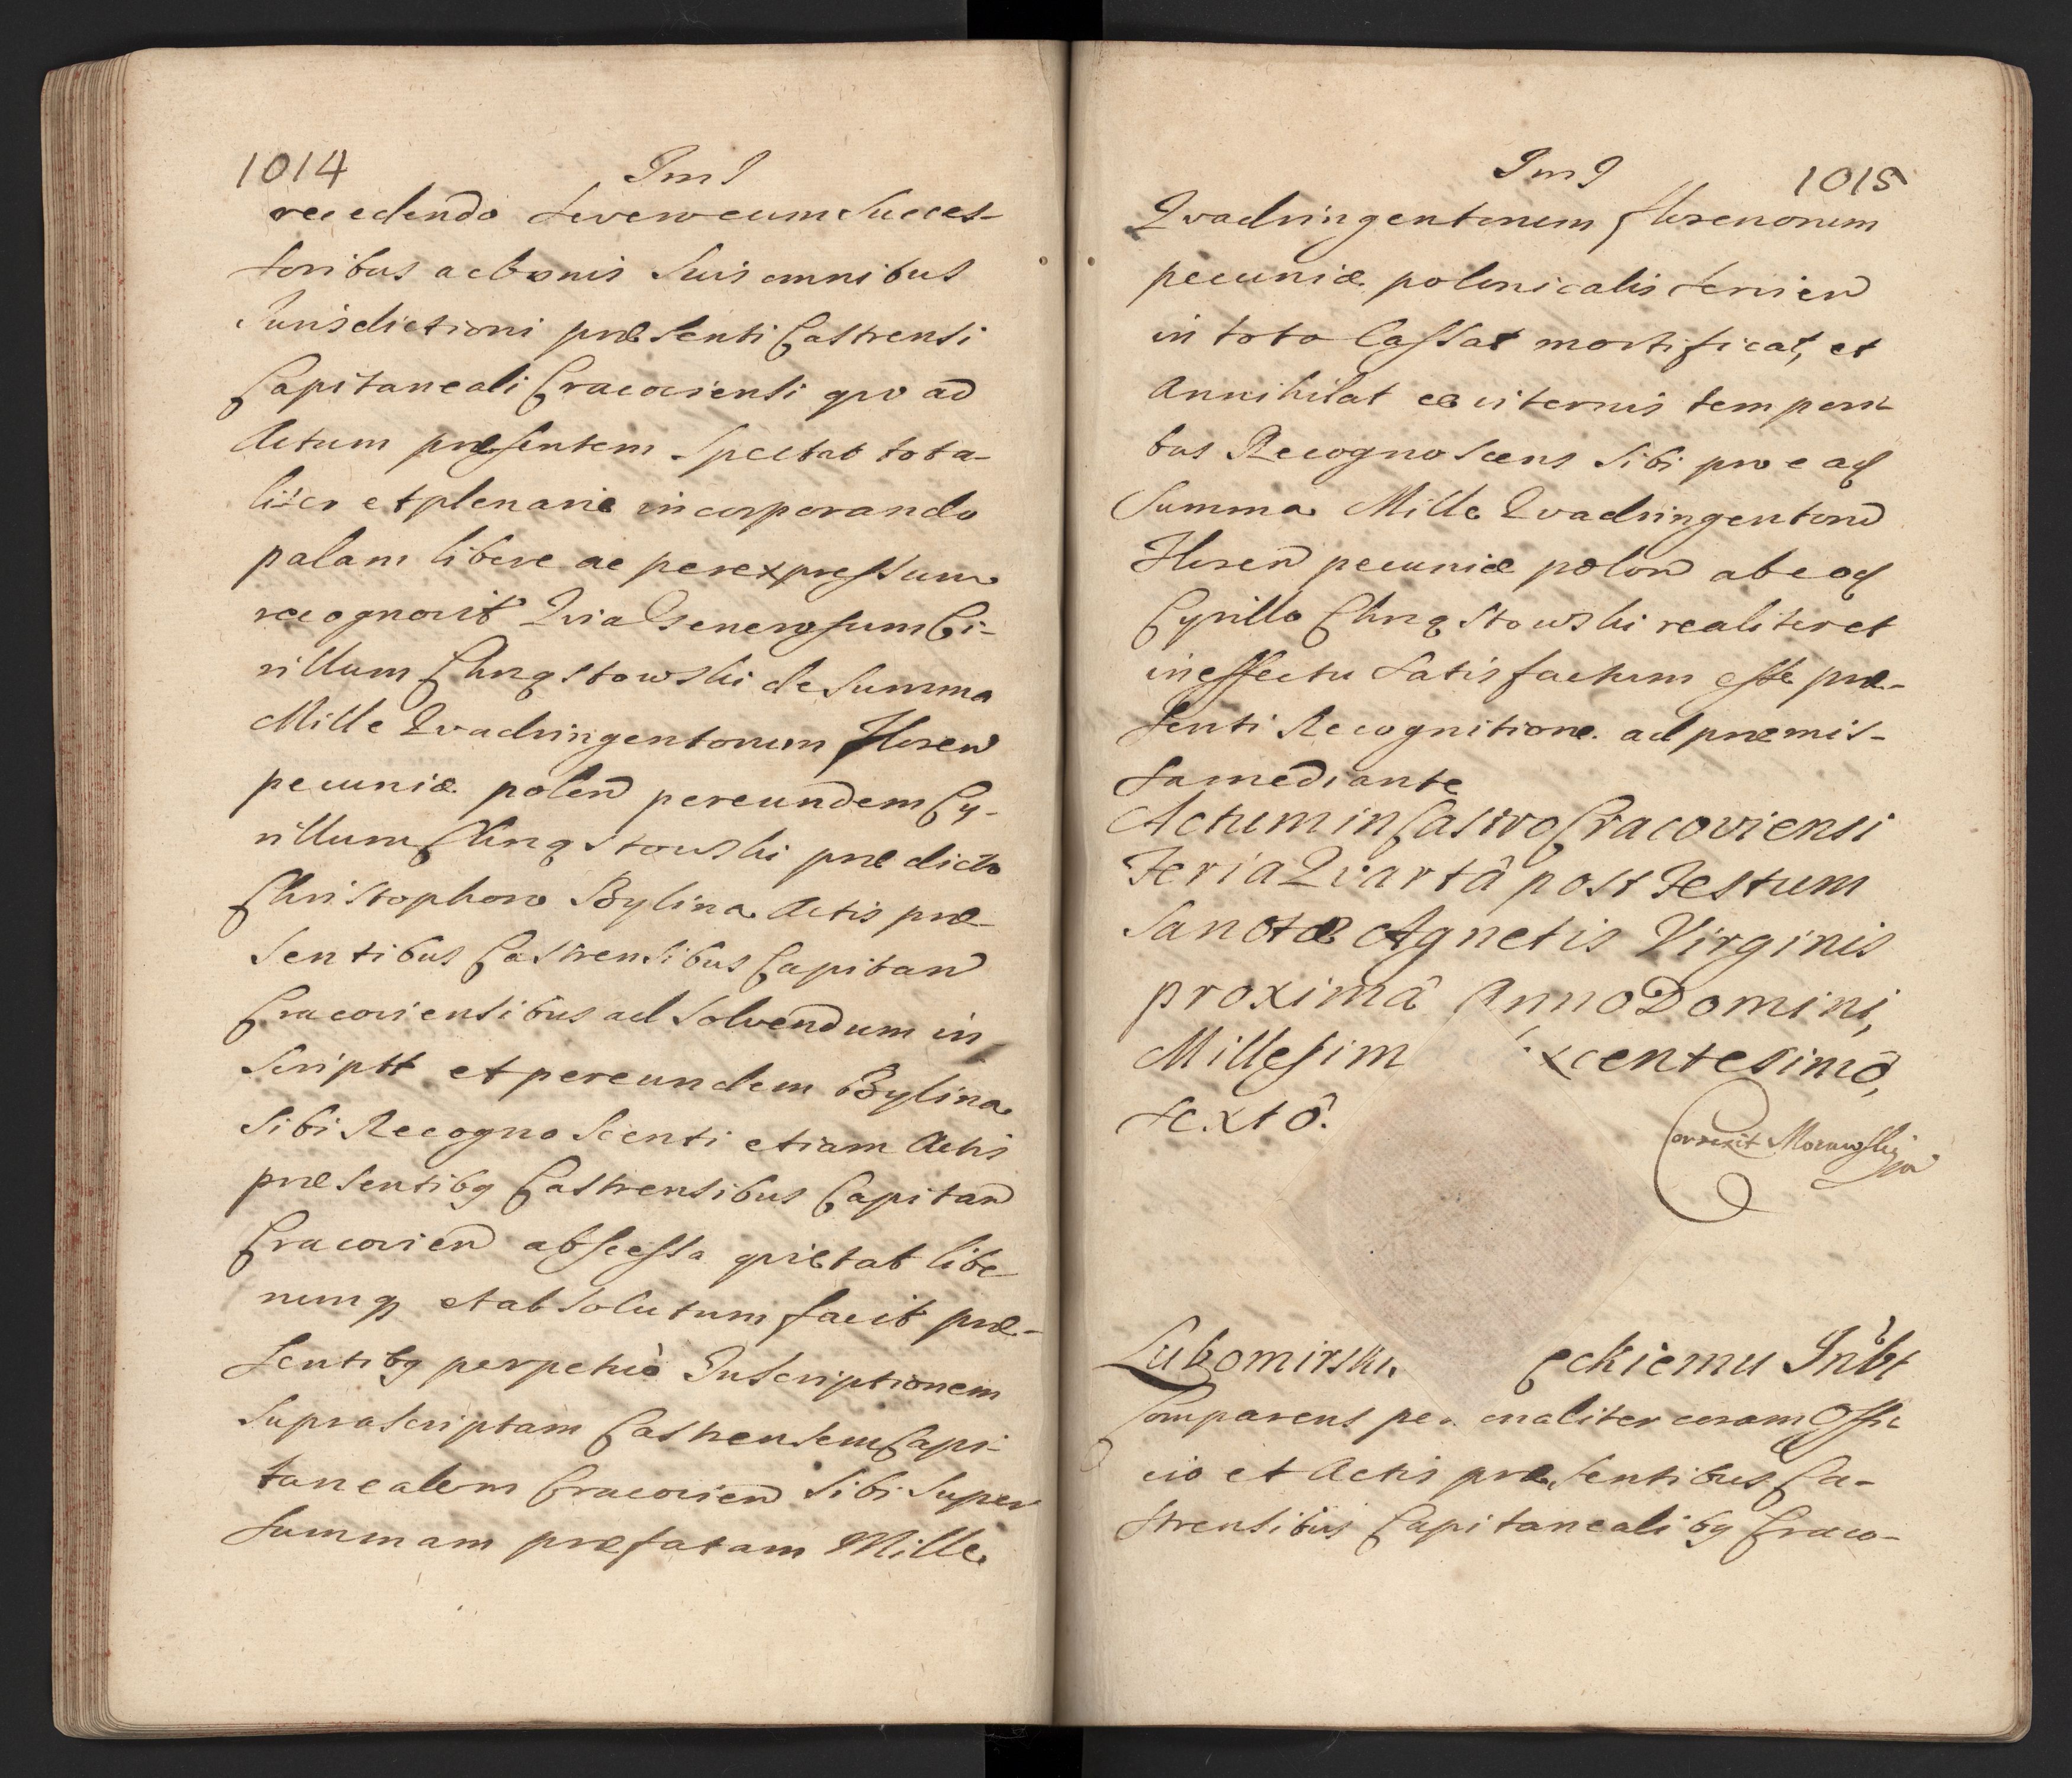 1014
recedendo severo cum Succes-
soribus ac bonis Suis omnibus
Jurisdictioni præsenti Castrensi
Capitaneali Cracoviensi quo ad
Actum præsentem Spectat tota-
liter et plenarie incorporando
palam libere ac per expressum
recognovit Quia Generosum Ci-
rillum Chrząstowski de Summa
Mille Quadringentorum Floren
pecuniæ polon per eundem Cy-
rillum Chrząstowski prædicto
Christophoro Bylina Actis præ-
Sentibus Castrensibus Capitan
Cracoviensibus ad Solvendum in-
Scriptt et per eundem Bylina
Sibi Recognoscenti etiam Actis
præsentibq Castrensibus Capitan
Cracovien abscessa quietat libe
rumq et absolutum facit præ-
sentibq perpetuò Inscriptionem
Suprascriptam Castrensem Capi-
tanealem Cracovien Sibi Super
Summam præfatam Mille
1015
Quadringentorum florenorum
pecuniæ polonicalis servien
in toto Cassat mortificat, et
Annihilat æviternis tempori-
bus Recognoscens Sibi pro eaq
Summa Mille Quadringentoru
Floren pecuniæ polon ab eoq
Cyrillo Chrząstowski realiter et
in effectu Satisfactum esse præ-
senti Recognitione ad præmis-
sa mediante
Actum in Castro Cracoviensi
Feria Quartâ post Festum
Sanctæ Agnetis Virginis
proximâ Anno Domini,
Millesim xcentesimô,
sextô.
Correxit Morawski
Lubomirski eckiemu Inbt
Comparens per onaliter coram Offi
cio et Actis præsentibus Ca-
strensibus Capitanealibq Craco-